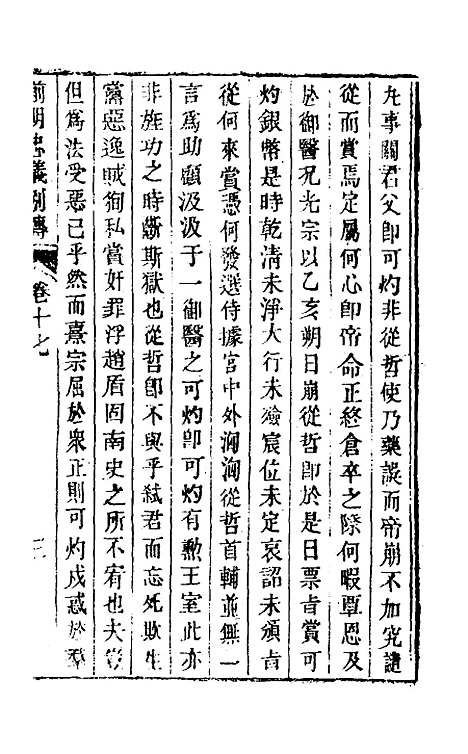 九事關君父卽可灼非從哲使乃藥誤而帝崩不加究譴
從而賞焉定屬何心卽帝命正終倉卒之際何暇覃恩及
於御醫况光宗以乙亥朔日崩從哲卽於是日票㫖賞可
灼銀幣是時乾清未淨大行未殮宸位未定哀詔未頒㫖
從何來賞憑何發選侍據宮中外洶洶從哲首輔並無一
言爲助顧汲汲于一御醫之可灼卽可灼有勲王室此亦
非旌功之時斷斯獄也從哲卽不與乎弑君而忘死欺生
黨惡逸賊徇私賞奸罪浮趙盾固南史之所不宥也夫豈
但爲法受惡已乎然而熹宗屈於衆正則可灼戍惑於羣
前明忠義別傳 卷十七 三